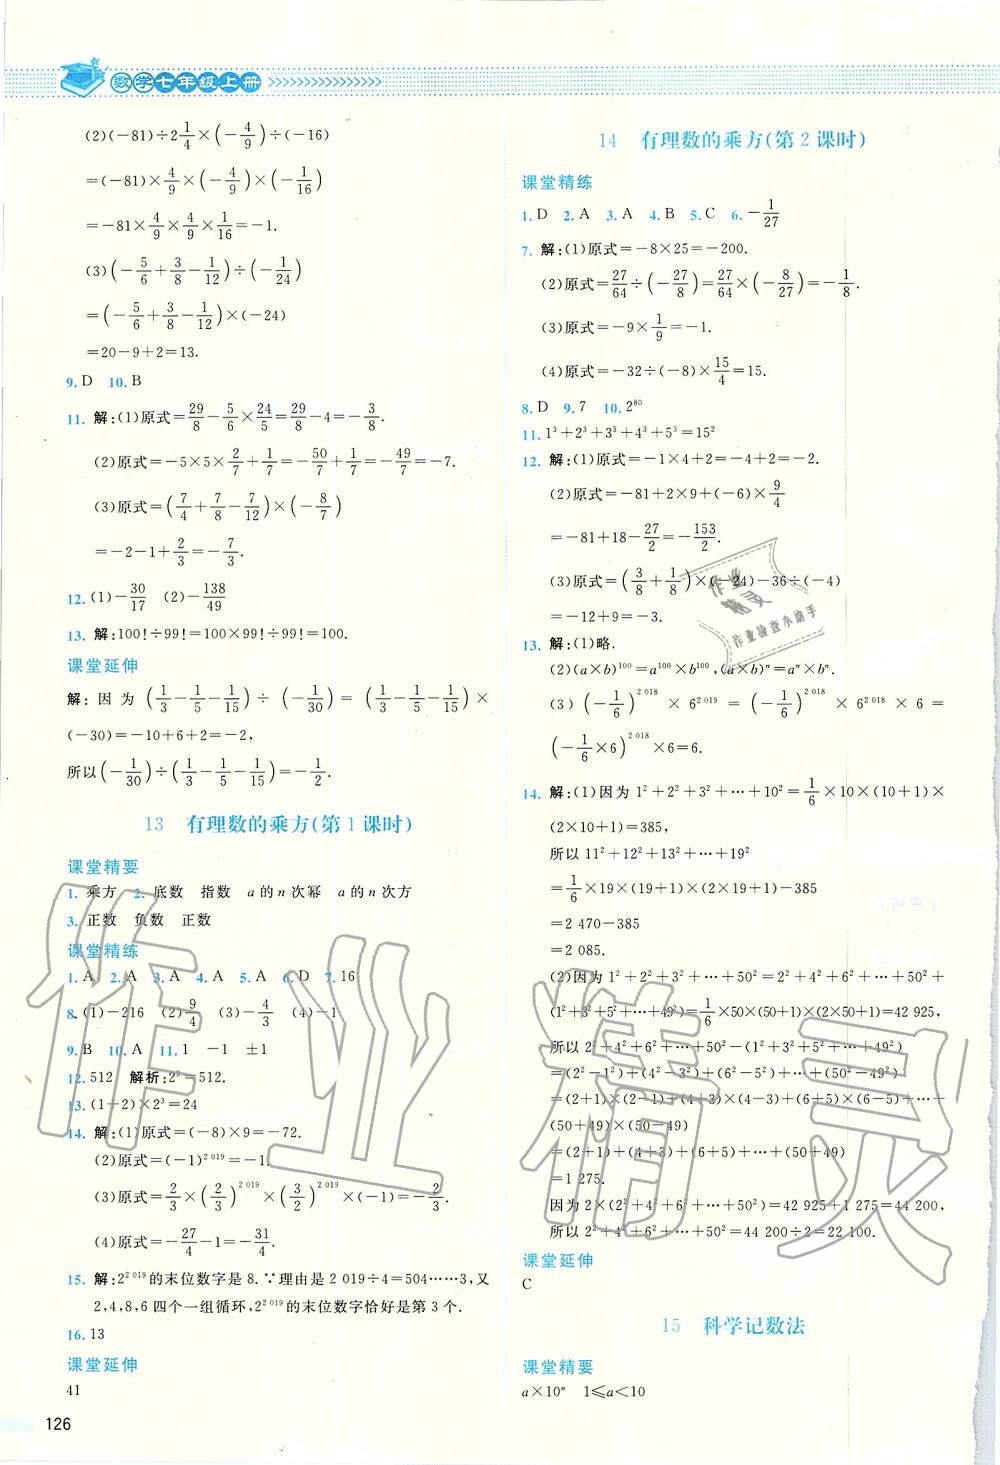 数学七年级上册
(2)(−81)÷2 1/4×(−4/9)÷(−16)
=(−81)×4/9×(−4/9)×(−1/16)
=−81×4/9×4/9×1/16=−1.
(3)(−5/6+3/8−1/12)÷(−1/24)
=(−5/6+3/8−1/12)×(−24)
=20−9+2=13.
9. D 10. B
11. 解:(1)原式=29/8−5/6×24/5=29/8−4=−3/8.
(2)原式=−5×5×2/7+1/7=−50/7+1/7=−49/7=−7.
(3)原式=(7/4+7/8−7/12)×(−8/7)
=−2−1+2/3=−7/3.
12. (1)−30/17 (2)−138/49
13. 解:100!÷99!=100×99!÷99!=100.
课堂延伸
解:因为(1/3−1/5−1/15)÷(−1/30)=(1/3−1/5−1/15)×
(−30)=−10+6+2=−2,
所以(−1/30)÷(1/3−1/5−1/15)=−1/2.
13 有理数的乘方(第1课时)
课堂精要
1. 乘方 2. 底数 指数 a的n次幂 a的n次方
3. 正数 负数 正数
课堂精练
1. A 2. A 3. A 4. A 5. A 6. D 7. 16
8. (1)−216 (2)9/4 (3)−4/3 (4)−1
9. B 10. A 11. 1 −1 ±1
12. 512 解析:2⁹=512.
13. (1+2)×2³=24
14. 解:(1)原式=(−8)×9=−72.
(2)原式=(−1)²⁰¹⁹=−1.
(3)原式=2/3×(2/3)²⁰¹⁹×(3/2)²⁰¹⁹×(−1)=−2/3.
(4)原式=−27/4−1=−31/4.
15. 解:2²⁰¹⁹的末位数字是8.∵理由是2 019÷4=504……3,又
2,4,8,6四个一组循环,2²⁰¹⁹的末位数字恰好是第3个.
16. 13
课堂延伸
41
126
14 有理数的乘方(第2课时)
课堂精练
1. D 2. A 3. A 4. B 5. C 6. −1/27
7. 解:(1)原式=−8×25=−200.
(2)原式=27/64÷(−27/8)=27/64×(−8/27)=−1/8.
(3)原式=−9×1/9=−1.
(4)原式=−32÷(−8)×15/4=15.
8. D 9. 7 10. 2⁸⁰
11. 1³+2³+3³+4³+5³=15²
12. 解:(1)原式=−1×4+2=−4+2=−2.
(2)原式=−81+2×9+(−6)×9/4
=−81+18−27/2=−153/2.
(3)原式=(3/8+1/8)×(−24)−36÷(−4)
=−12+9=−3.
13. 解:(1)略.
(2)(a×b)¹⁰⁰=a¹⁰⁰×b¹⁰⁰,(a×b)ⁿ=aⁿ×bⁿ.
(3)(−1/6)²⁰¹⁸×6²⁰¹⁹=(−1/6)²⁰¹⁸×6²⁰¹⁸×6=
(−1/6×6)²⁰¹⁸×6=6.
14. 解:(1)因为1²+2²+3²+…+10²=1/6×10×(10+1)×
(2×10+1)=385,
所以11²+12²+13²+…+19²
=1/6×19×(19+1)×(2×19+1)−385
=2 470−385
=2 085.
(2)因为1²+2²+3²+…+50²=2²+4²+6²+…+50²+
(1²+3²+5²+…+49²)=1/6×50×(50+1)×(2×50+1)=42 925,
所以2²+4²+6²+…+50²−(1²+3²+5²+…+49²)
=(2²−1²)+(4²−3²)+(6²−5²)+…+(50²−49²)
=(2+1)×(2−1)+(4+3)×(4−3)+(6+5)×(6−5)+…+
(50+49)×(50−49)
=(2+1)+(4+3)+(6+5)+…+(50+49)
=1 275.
因为2×(2²+4²+6²+…+50²)=42 925+1 275=44 200,
所以2²+4²+6²+…+50²=44 200÷2=22 100.
课堂延伸
C
15 科学记数法
课堂精要
a×10ⁿ 1≤a<10
作业精灵
作业检查小助手
作业精灵